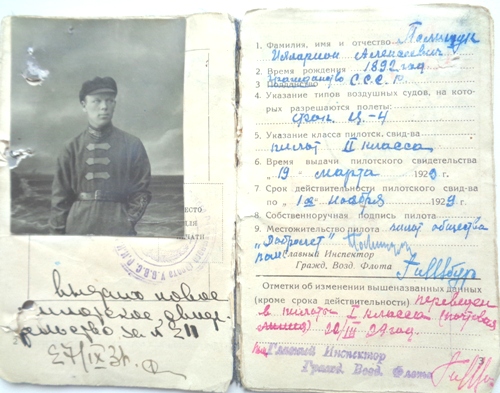 МЕСТО
ДЛЯ
ПЕЧАТИ
выдано новое
пилотское свиде-
тельство за № 211
27/IX 31.
1. Фамилия, имя и отчество Полищук
Илларион Алексеевич
2. Время рождения 1892 год
3 Подданство Гражданство С.С.С.Р.
4. Указание типов воздушных судов, на ко-
торых разрешаются полеты:
Ц.-4
5. Указание класса пилотск. свид-ва
пилот II класса
6. Время выдачи пилотского свидетельства
„19 марта 1929 г.
7 Срок действительности пилотского свид-ва
по „ 1го ноября 1929 г.
8. Собственноручная подпись пилота
9. Местожительство пилота пилот общества
„Добролет"
Главный Инспектор
Гражд. Возд. Флота
Отметки об изменении вышеназванных данных
(кроме срока действительности) переведен
в пилоты I класса (почтовая
линия) 22/III-29 год.
Главный Инспектор
Гражд. Возд. Флота
3